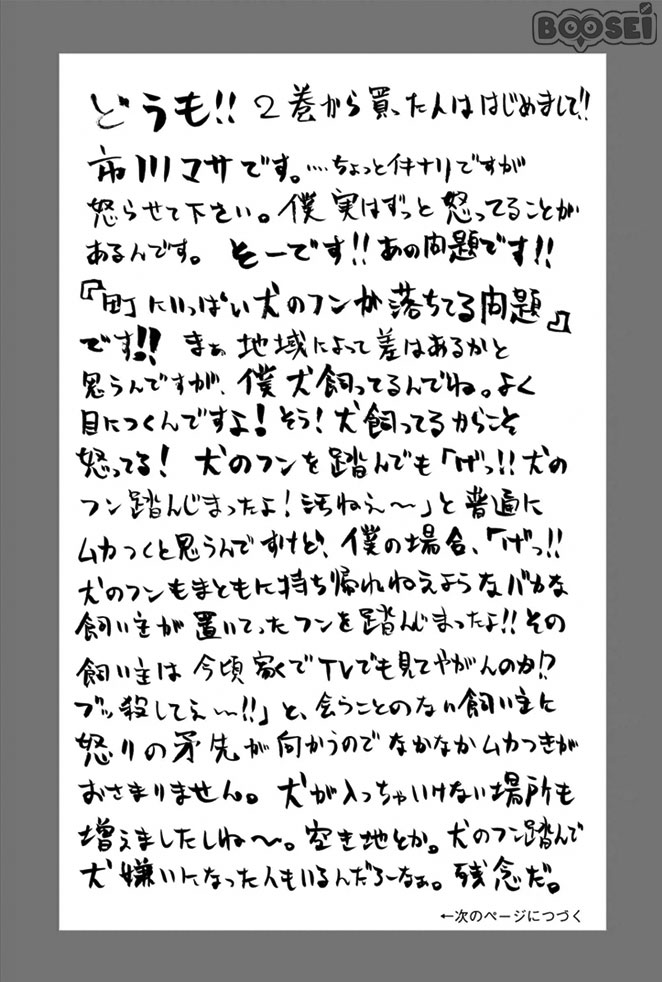 BOOSEI
どうも!! 2巻から買った人ははじめまして!!
市川マサです。…ちょっとイキナリですが
怒らせて下さい。僕実はずっと怒ってることが
あるんです。そーです!!あの問題です!!
『町にいっぱい犬のフンが落ちてる問題』
です!! まぁ地域によって差はあるかと
思うんですが、僕犬飼ってるんでね。よく
目につくんですよ!そう!犬飼ってるからこそ
怒ってる! 犬のフンを踏んでも「げっ!!犬の
フン踏んじまったよ!汚ねえ〜」と普通に
ムカつくと思うんですけど、僕の場合、「げっ!!
犬のフンもまともに持ち帰れねえようなバカな
飼い主が置いてったフンを踏んじまったよ!!その
飼い主は今頃家でTVでも見てやがんのか!?
ブッ殺してえ〜!!」と、会うことのない飼い主に
怒りの矛先が向かうのでなかなかムカつきが
おさまりません。犬が入っちゃいけない場所も
増えましたしね〜。空き地とか。犬のフン踏んで
犬嫌いになった人もいるんだろーなぁ。残念だ。
←次のページにつづく